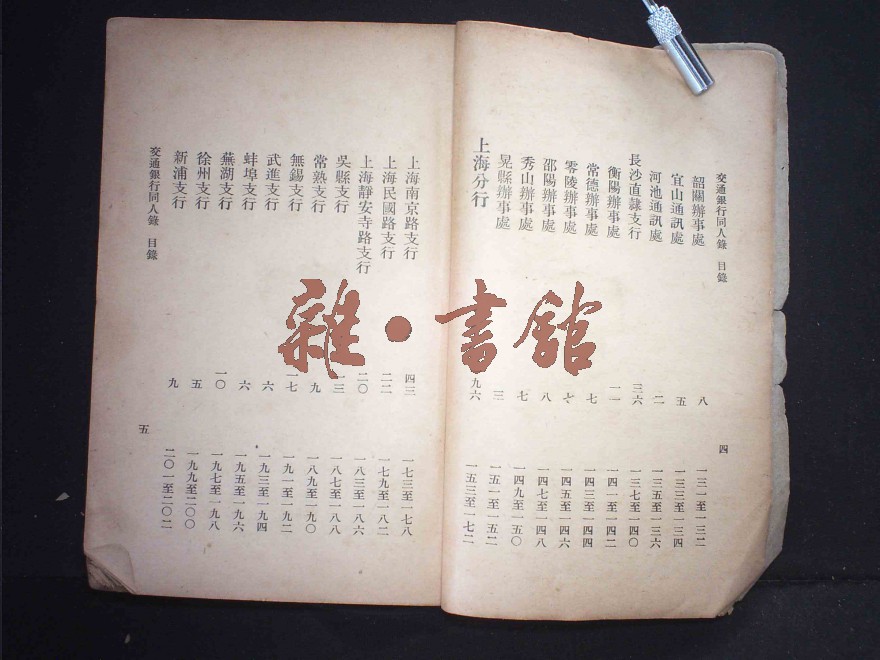 交通銀行同人錄 目錄
韶關辦事處 八 一三一至一三二
宜山通訊處 五 一三三至一三四
河池通訊處 二 一三五至一三六
長沙直隸支行 三六 一三七至一四〇
衡陽辦事處 一一 一四一至一四二
常德辦事處 七 一四三至一四四
零陵辦事處 七 一四五至一四六
邵陽辦事處 八 一四七至一四八
秀山辦事處 七 一四九至一五〇
晃縣辦事處 三 一五一至一五二
上海分行 九六 一五三至一七二
四
上海南京路支行 四三 一七三至一七八
上海民國路支行 二二 一七九至一八二
上海靜安寺路支行 二〇 一八三至一八六
吳縣支行 一三 一八七至一八八
常熟支行 九 一八九至一九〇
無錫支行 一七 一九一至一九二
武進支行 六 一九三至一九四
蚌埠支行 六 一九五至一九六
蕪湖支行 一〇 一九七至一九八
徐州支行 五 一九九至二〇〇
新浦支行 九 二〇一至二〇二
交通銀行同人錄 目錄
五
雜·書館